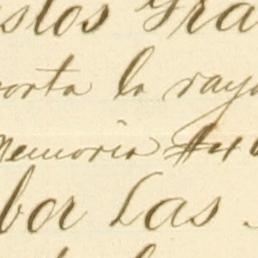 stos Gra
orta la raya
Memoria
bor Las